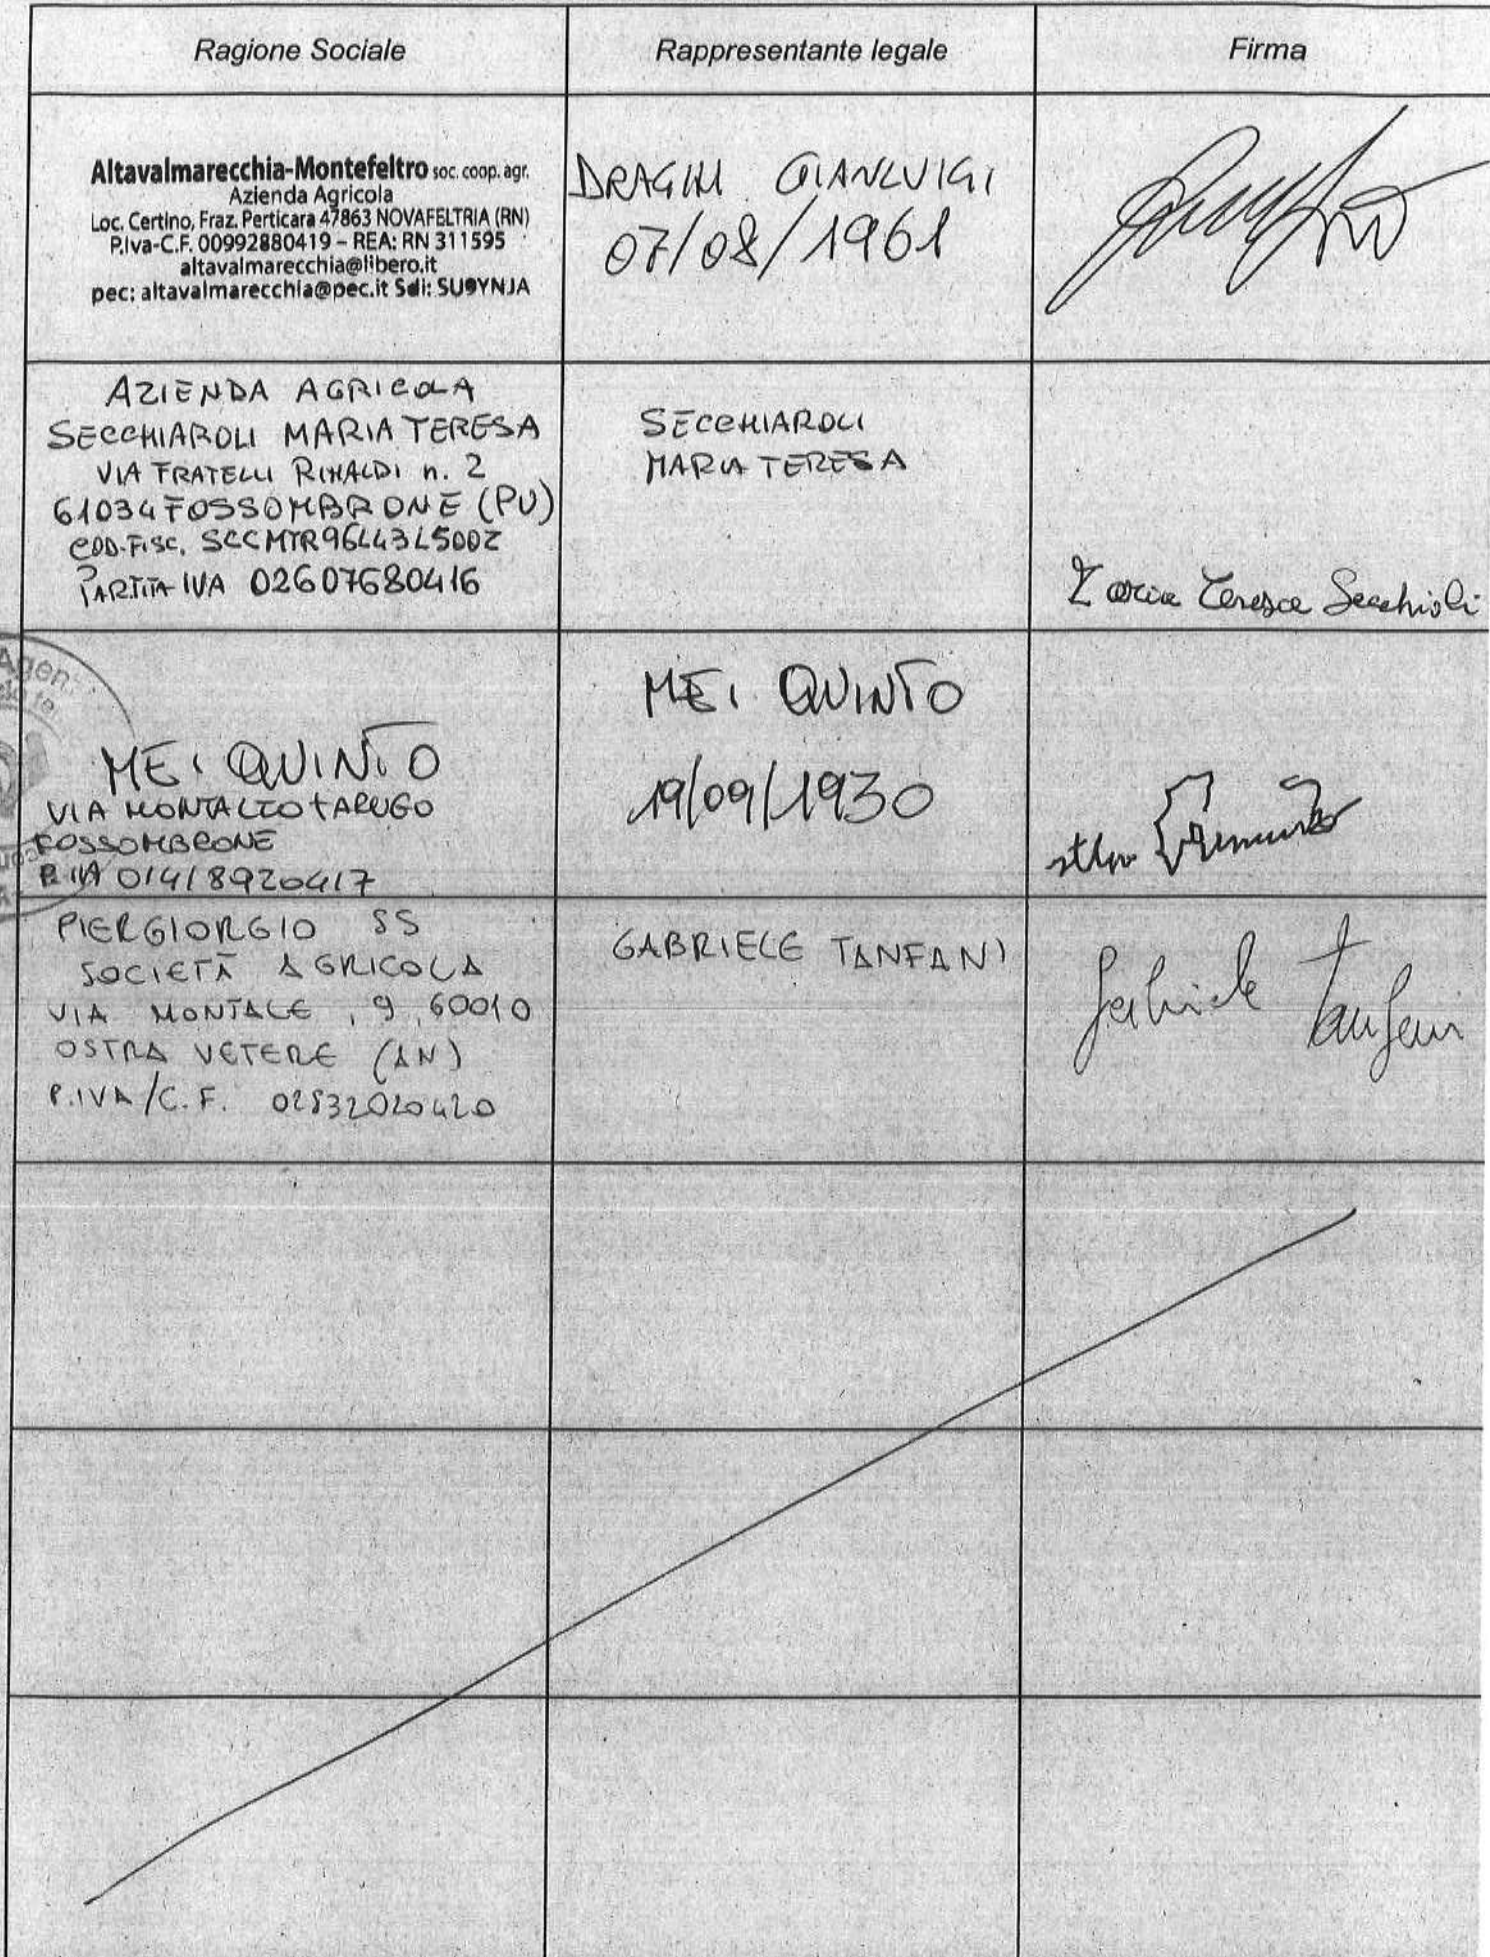 Ragione Sociale
Rappresentante legale
Firma
Altavalmarecchia-Montefeltro soc. coop. agr.
Azienda Agricola
Loc. Certino, Fraz. Perticara 47863 NOVAFELTRIA (RN)
P.Iva-C.F. 00992880419 – REA: RN 311595
altavalmarecchia@libero.it
pec: altavalmarecchia@pec.it Sdi: SU9YNJA
DRAGHI GIANLUIGI
07/08/1961
AZIENDA AGRICOLA
SECCHIAROLI MARIA TERESA
VIA FRATELLI RINALDI n. 2
61034 FOSSOMBRONE (PU)
COD.FISC. SCCMTR96L43L500Z
PARTITA IVA 02607680416
SECCHIAROLI
MARIA TERESA
Maria Teresa Secchiroli
MEI QUINTO
VIA MONTALTO TARUGO
FOSSOMBRONE
P.IVA 01418920417
MEI QUINTO
19/09/1930
PIERGIORGIO SS
SOCIETÀ AGRICOLA
VIA MONTALE, 9, 60010
OSTRA VETERE (AN)
P.IVA/C.F. 02832020420
GABRIELE TANFANI
Gabriele Tanfani
Agen